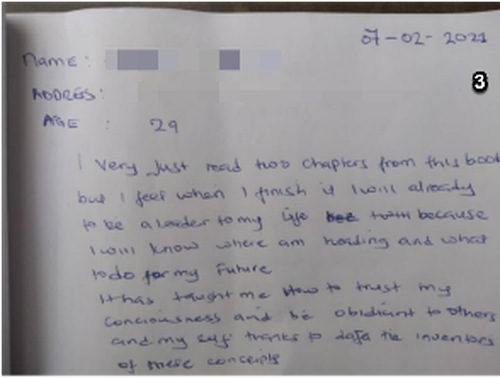 07-02-2021
Name:
3
ADDRES:
AGE : 29
I very just read two chapters from this book
but I feel when I finish it I will already
to be a leader to my life because
I will know where am heading and what
to do for my future
It has taught me how to trust my
conciousness and be obidiant to others
and my self thanks to the inventors
of these concepts